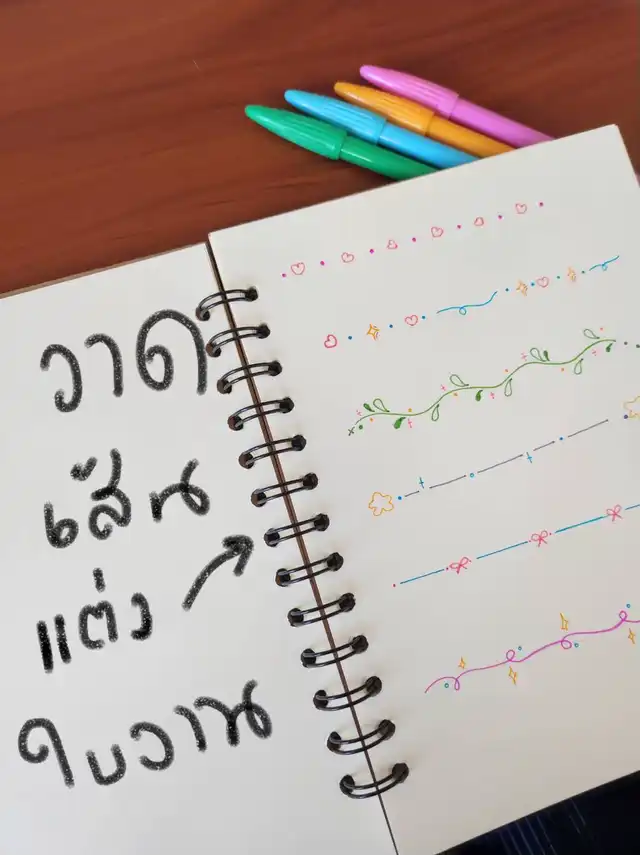 วาด
เส้น
แต่ง
ใบงาน